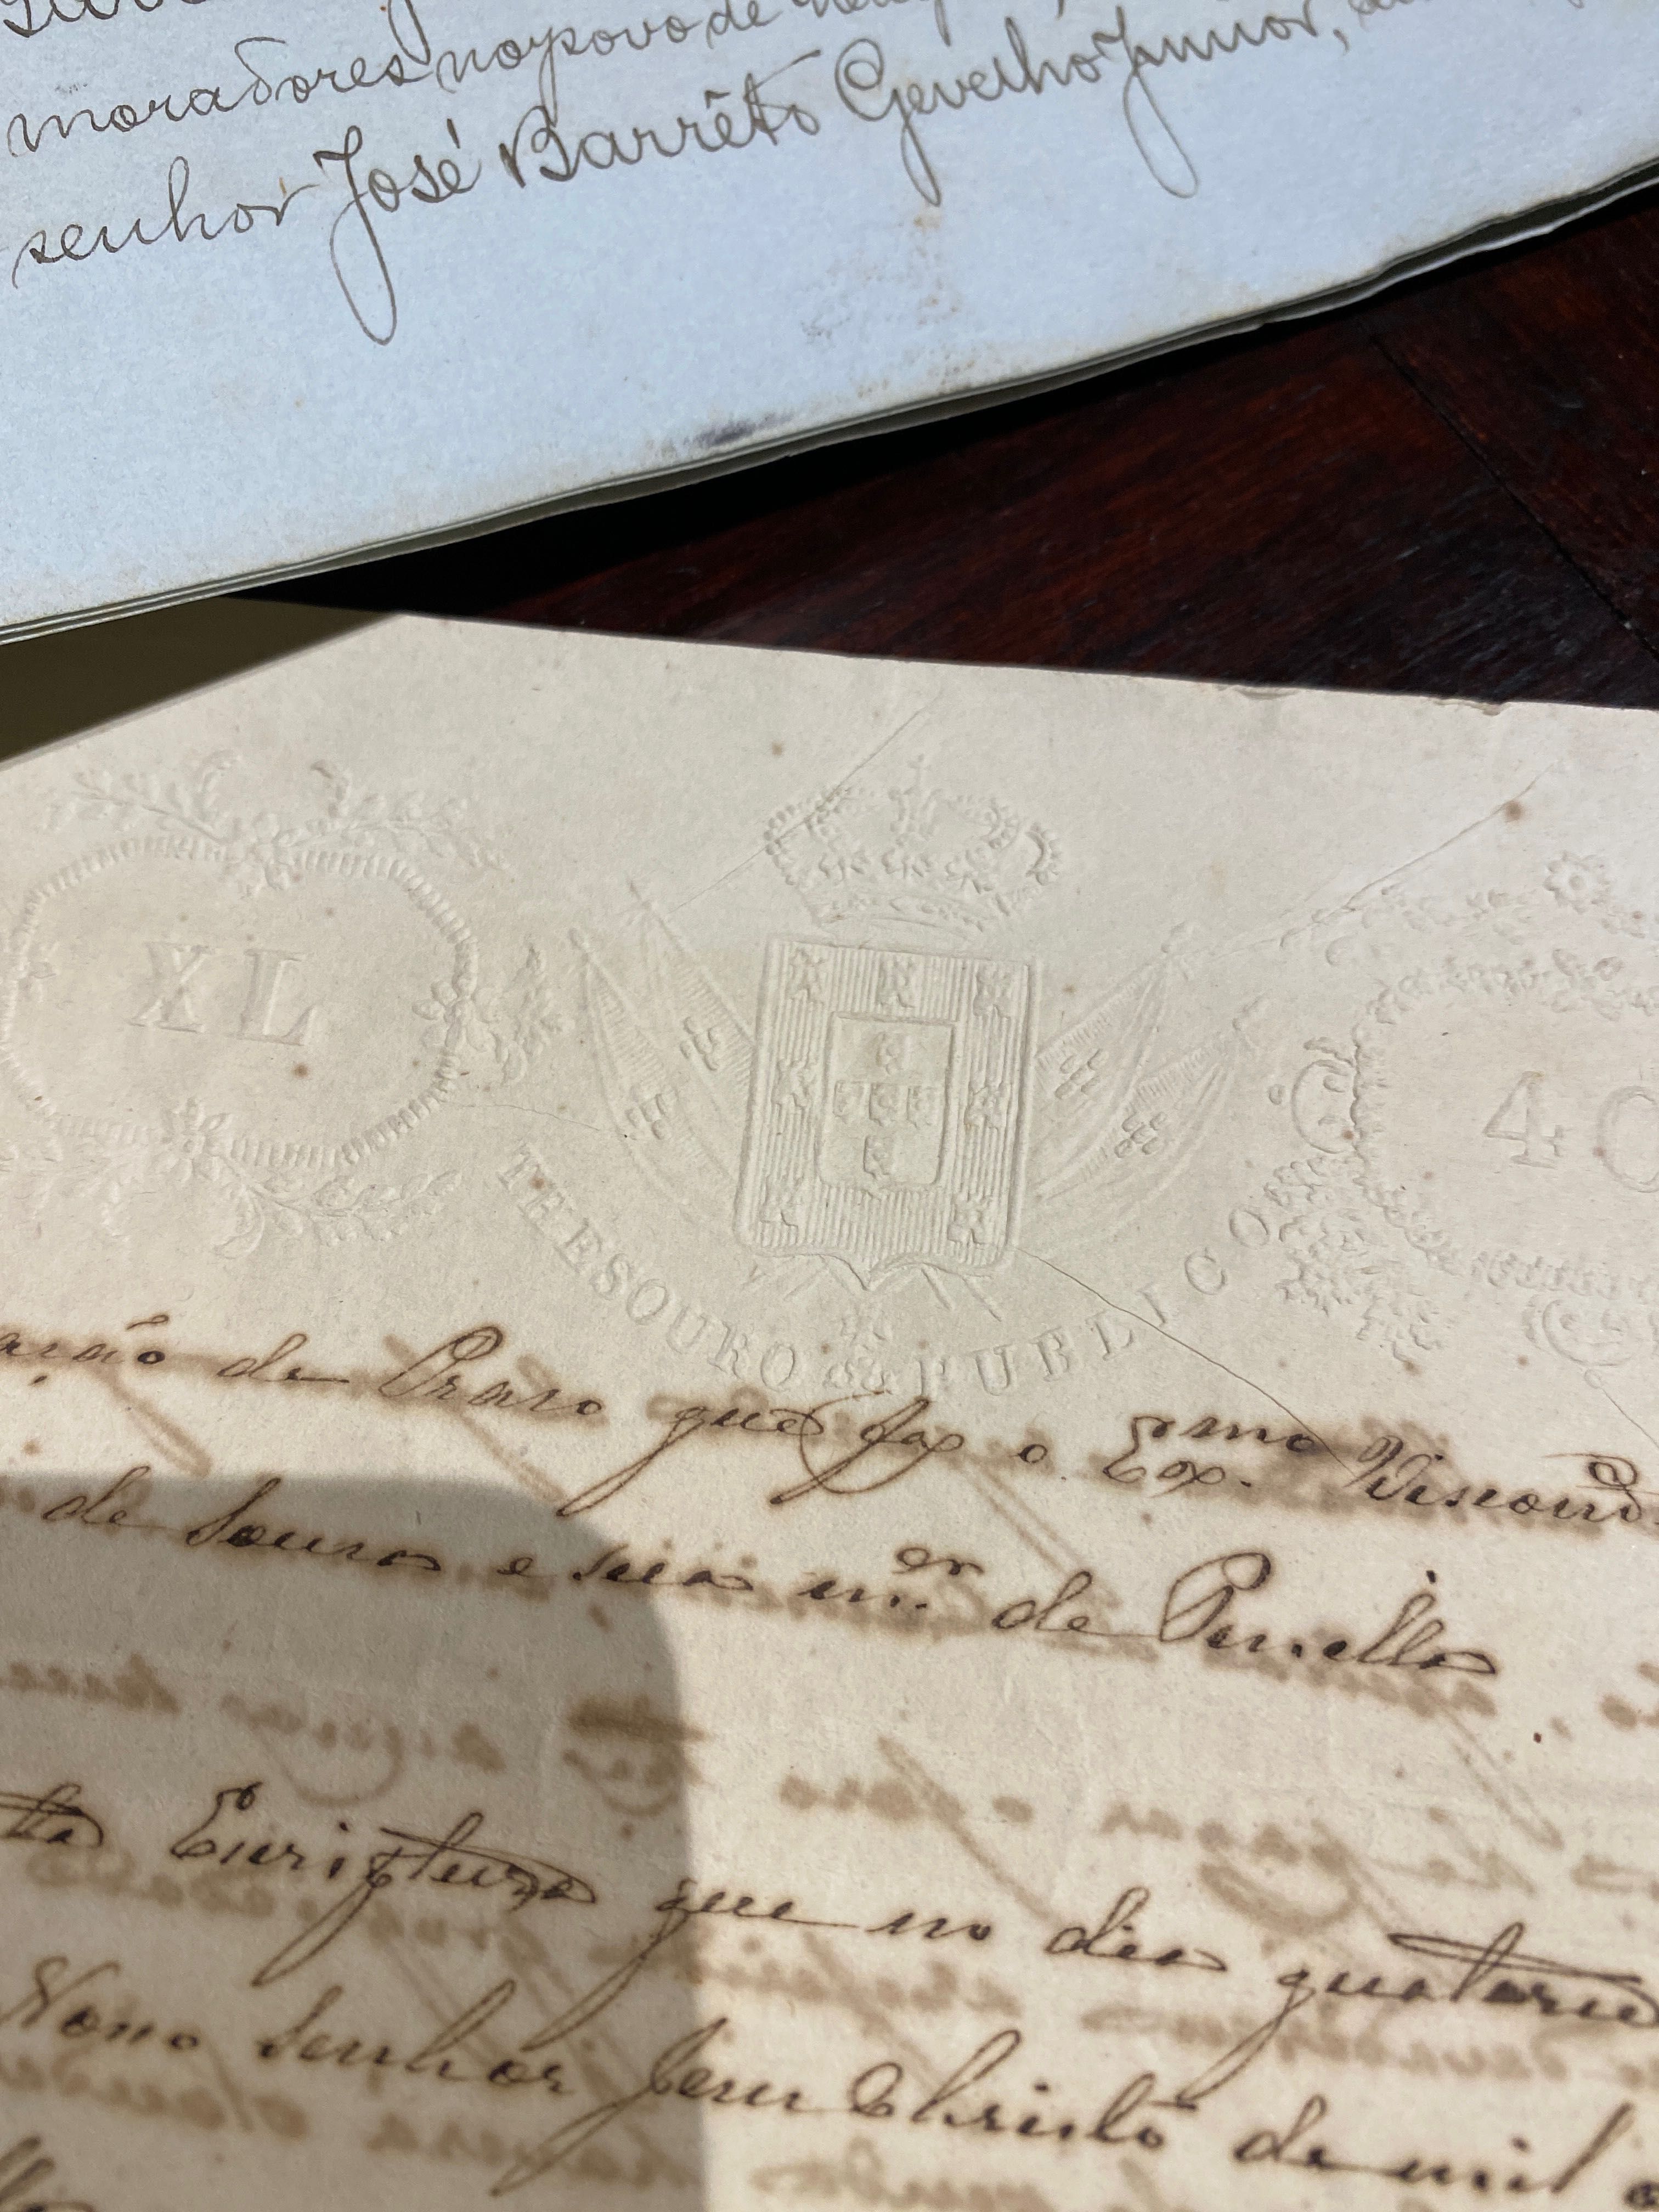 moradores no povo de
senhor José Barrêto Gevelho Junior,
XL
40
THESOURO PUBLICO
de Praso que faz o Ex.mo Viscond
de Souza e sua m.er de Penella
Escriptura que no dia quatorze
Nosso Senhor Jesu Christo de mil